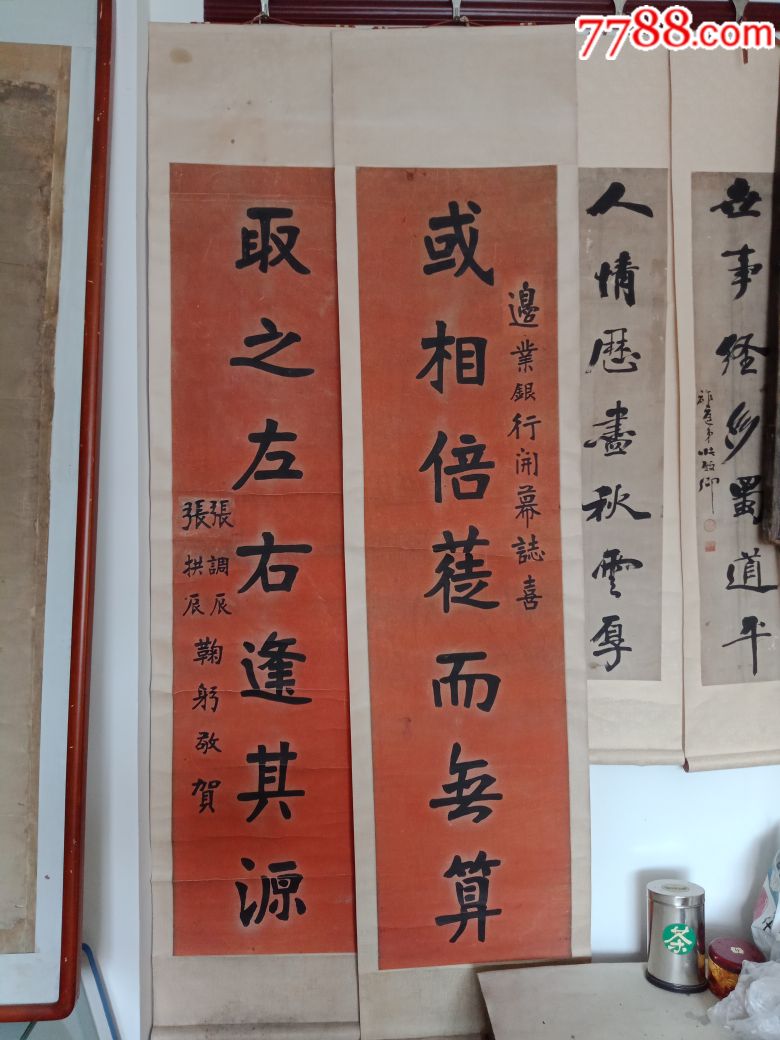 7788.com
世事經多蜀道平
人情歷盡秋雲厚
邊業銀行開幕誌喜
或相倍蓰而無算
取之左右逢其源
張調辰
張拱辰
鞠躬敬賀
茶